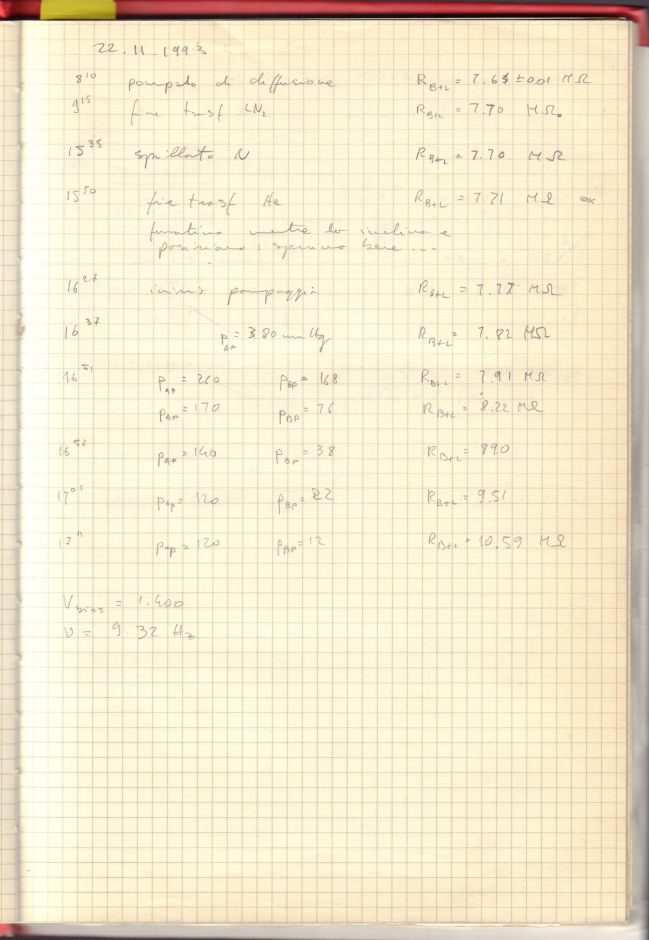 22.11.1993
8¹⁰ pompato di diffusione R_B+L = 7.64 ±0.01 MΩ
9¹⁵ fine trasf LN₂ R_B+L = 7.70 MΩ
15³⁵ spillato N R_B+L = 7.70 MΩ
15⁵⁰ fine trasf He R_B+L = 7.71 MΩ
mentre lo inclino e
posiziono: speriamo bene ...
16²⁷ inizio pompaggio R_B+L = 7.77 MΩ
16³⁷ p_AP = 380 mmHg R_B+L = 7.82 MΩ
16⁵¹ p_AP = 260 p_BP = 168 R_B+L = 7.91 MΩ
p_AP = 170 p_BP = 76 R_B+L = 8.22 MΩ
p_AP = 140 p_BP = 38 R_B+L = 890
p_AP = 120 p_BP = 22 R_B+L = 9.51
17¹¹ p_AP = 120 p_BP = 12 R_B+L = 10.59 MΩ
V_bias = 1.400
ν = 9.32 Hz